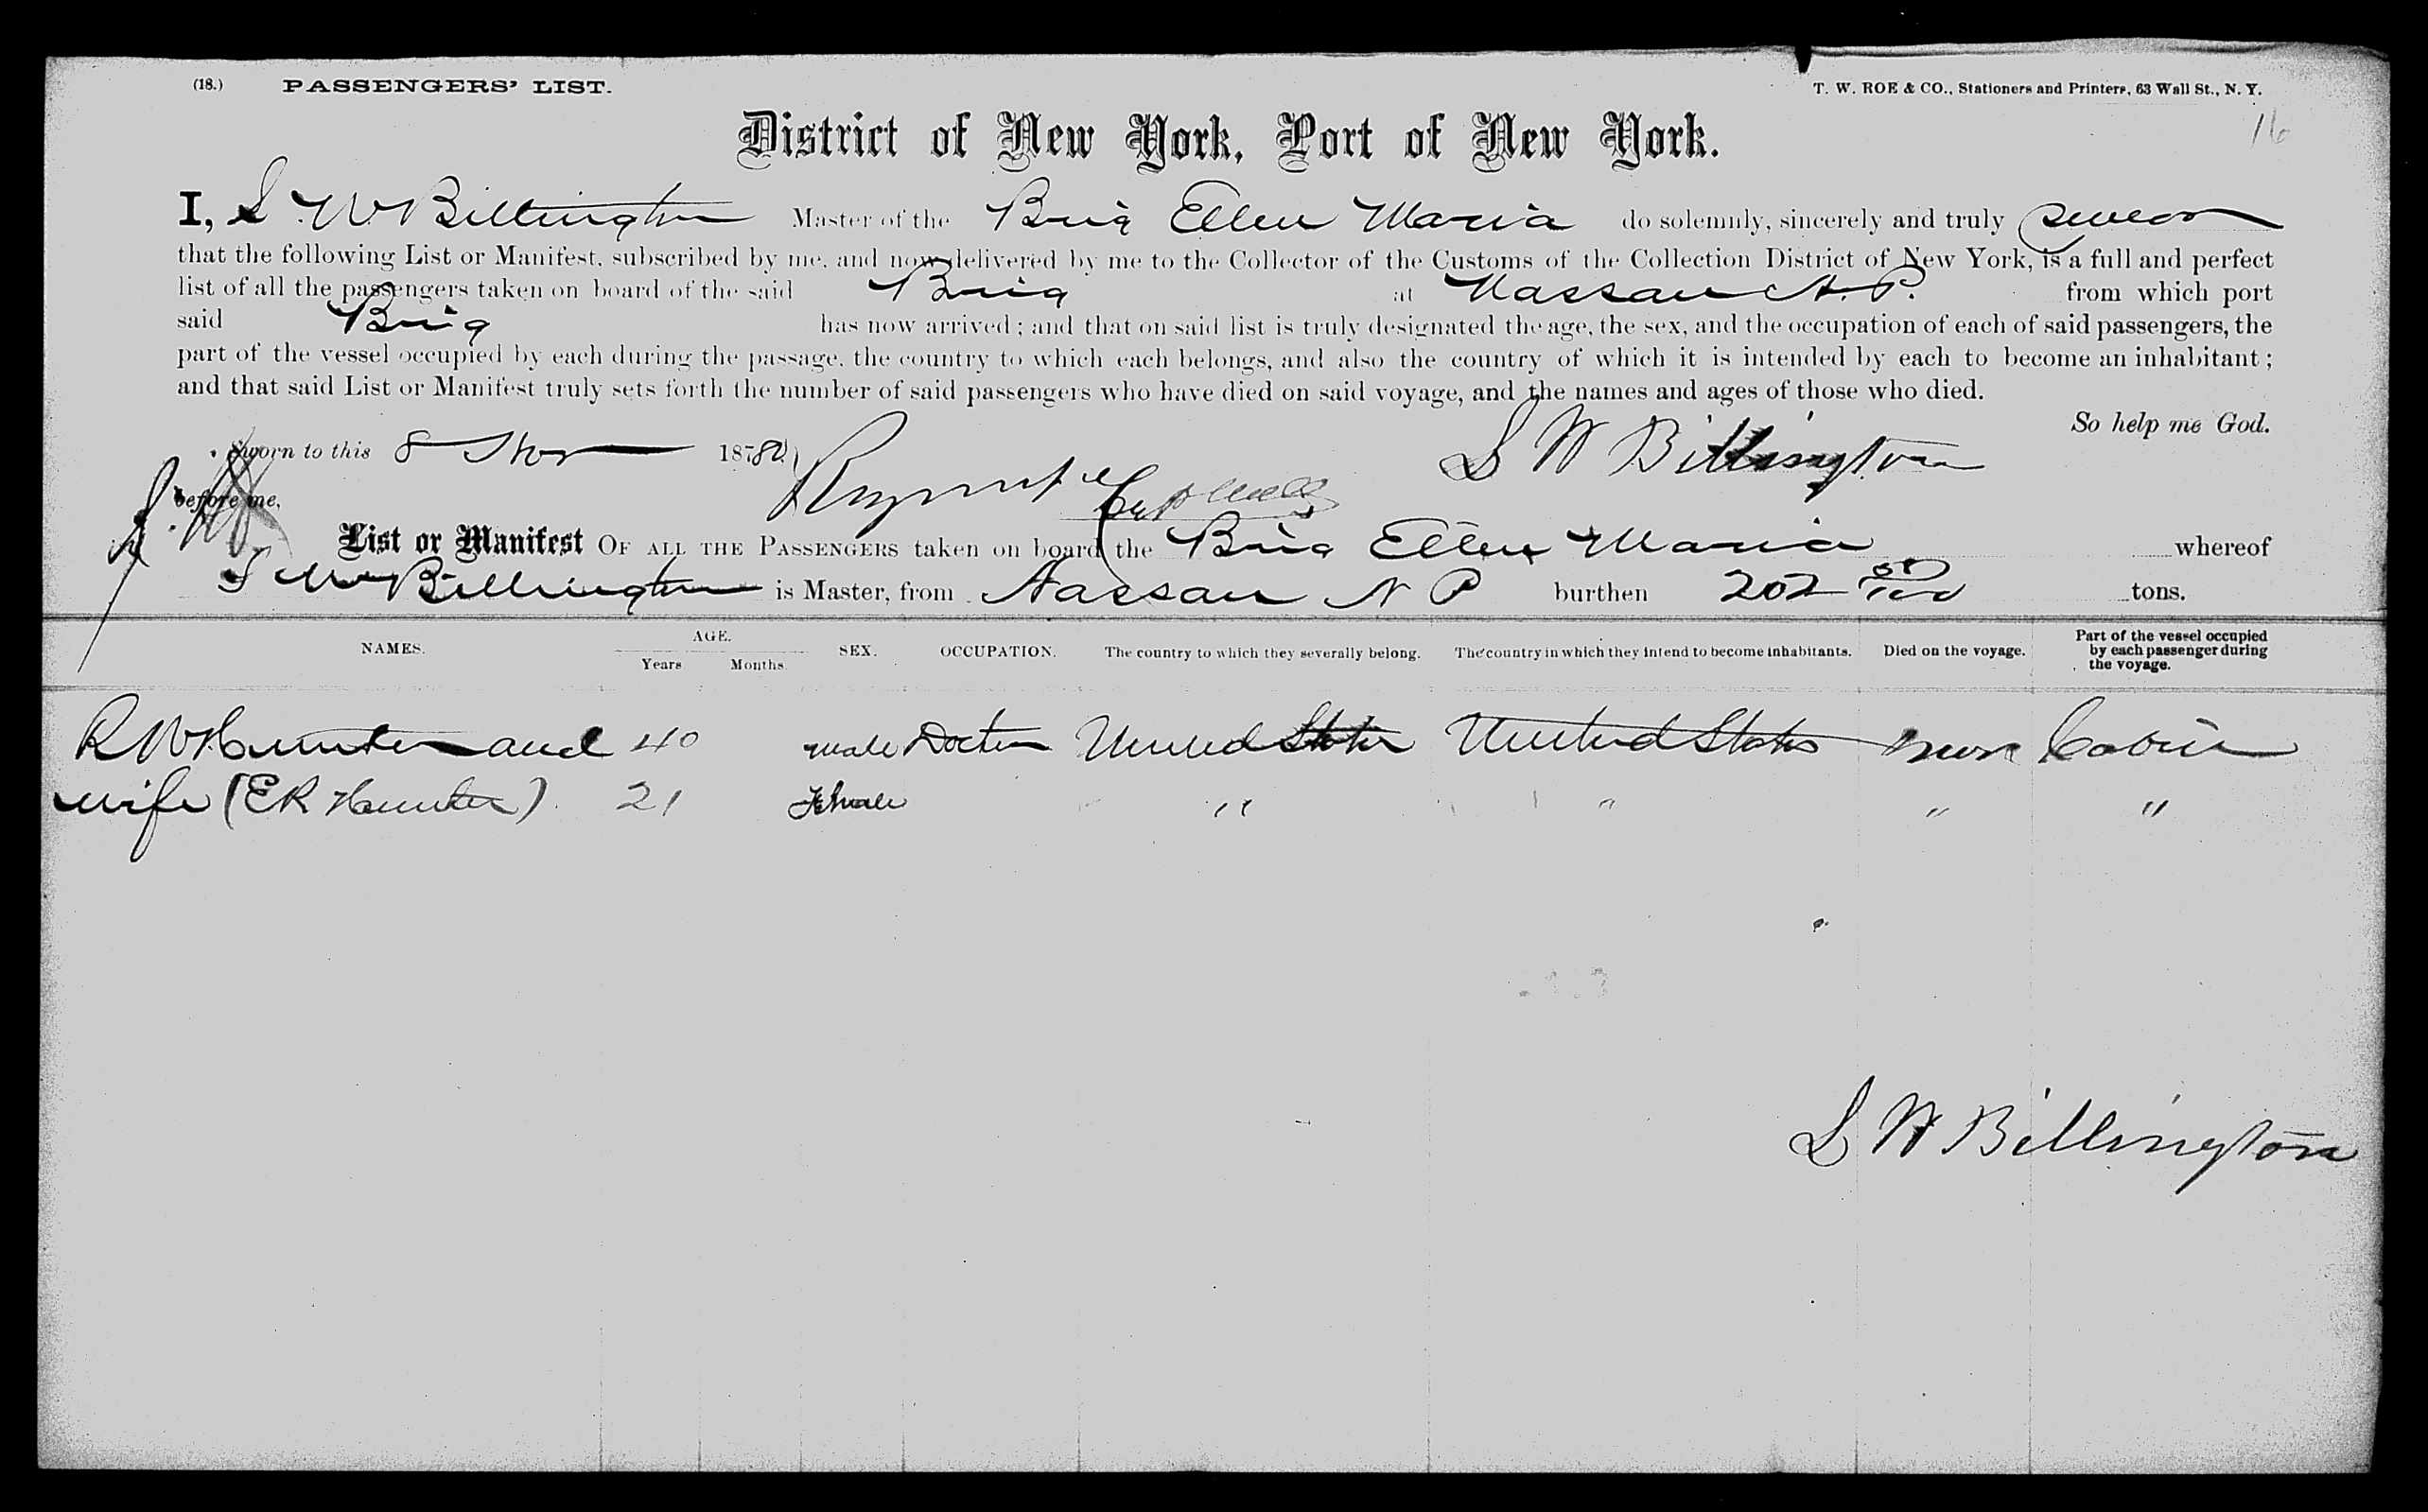 (18.) PASSENGERS' LIST. T. W. ROE & CO., Stationers and Printers, 63 Wall St., N. Y.
16
District of New York, Port of New York.
I, S W Billington Master of the Brig Ellen Maria do solemnly, sincerely and truly swear
that the following List or Manifest, subscribed by me, and now delivered by me to the Collector of the Customs of the Collection District of New York, is a full and perfect
list of all the passengers taken on board of the said Brig at Nassau N. P. from which port
said Brig has now arrived; and that on said list is truly designated the age, the sex, and the occupation of each of said passengers, the
part of the vessel occupied by each during the passage, the country to which each belongs, and also the country of which it is intended by each to become an inhabitant;
and that said List or Manifest truly sets forth the number of said passengers who have died on said voyage, and the names and ages of those who died.
So help me God.
Sworn to this 8 Nov 1880 S W Billington
before me,
List or Manifest OF ALL THE PASSENGERS taken on board the Brig Ellen Maria whereof
S W Billington is Master, from Nassau N P burthen 202 tons.
NAMES. AGE. Years Months SEX. OCCUPATION. The country to which they severally belong. The country in which they intend to become inhabitants. Died on the voyage. Part of the vessel occupied by each passenger during the voyage.
R W Hunter and 40 male Doctor United States United States none Cabin
wife (E R Hunter) 21 Female " " " "
S W Billington